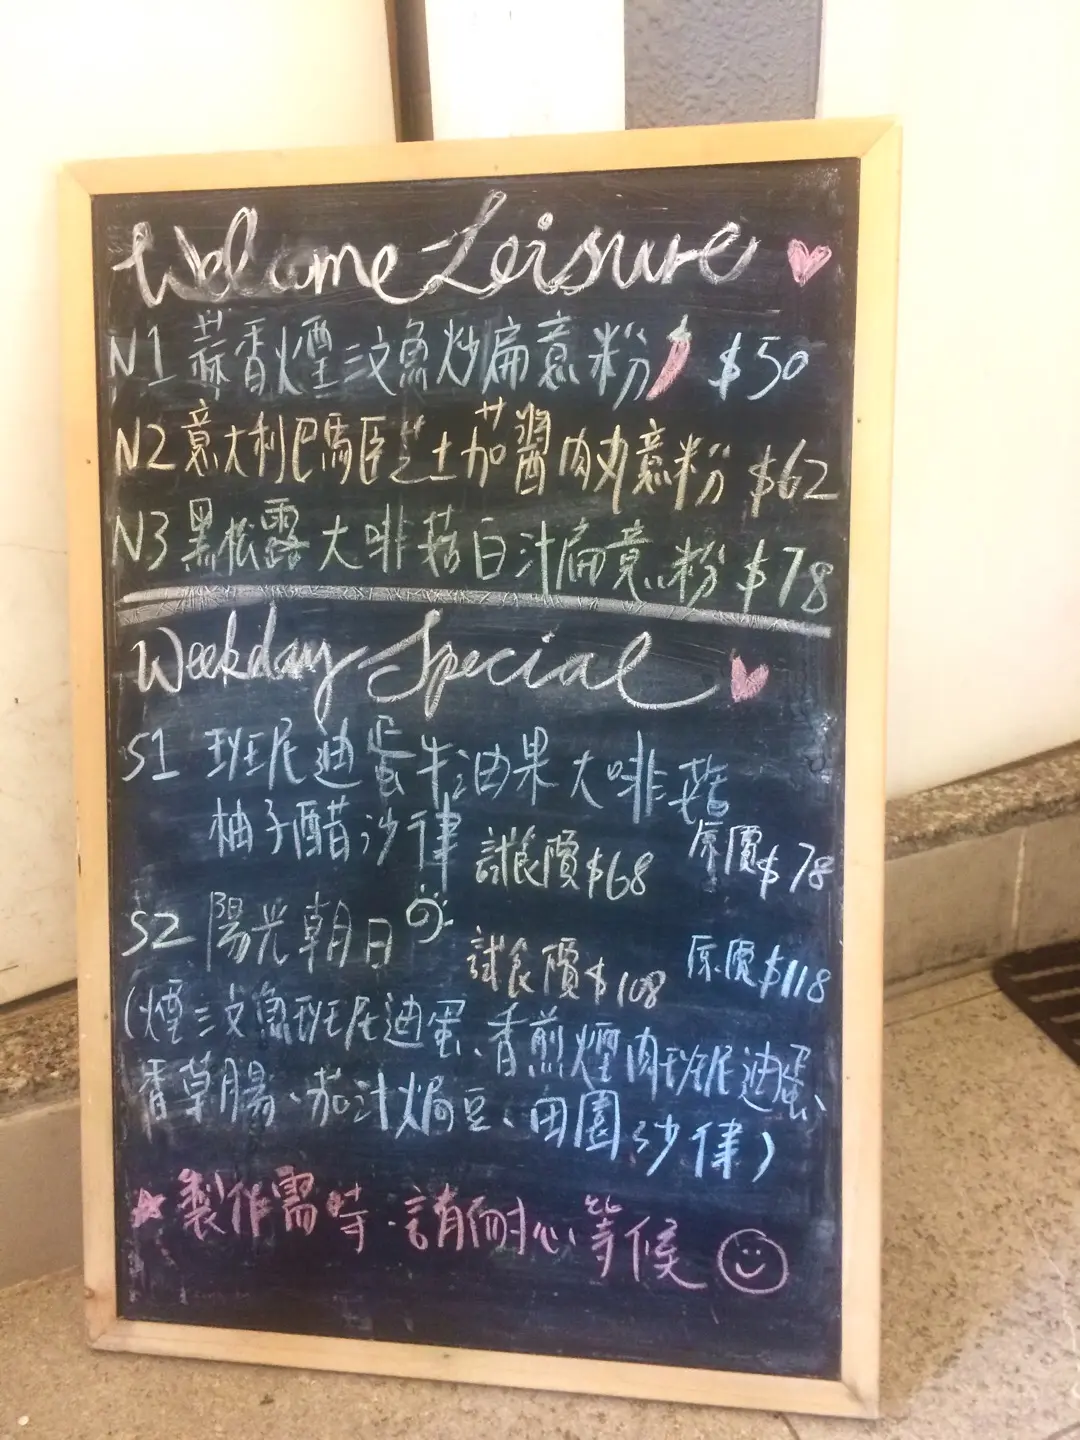 Welcome Leisure
N1 蒜香煙三文魚炒扁意粉 $50
N2 意大利巴馬臣芝士茄醬肉丸意粉 $62
N3 黑松露大啡菇白汁扁意粉 $78
Weekday Special
S1 班尼迪蛋牛油果大啡菇
柚子醋沙律 試食價$68 原價$78
S2 陽光朝日 試食價$108 原價$118
(煙三文魚班尼迪蛋、香煎煙肉班尼迪蛋、
香草腸、茄汁焗豆、田園沙律)
製作需時.請耐心等候